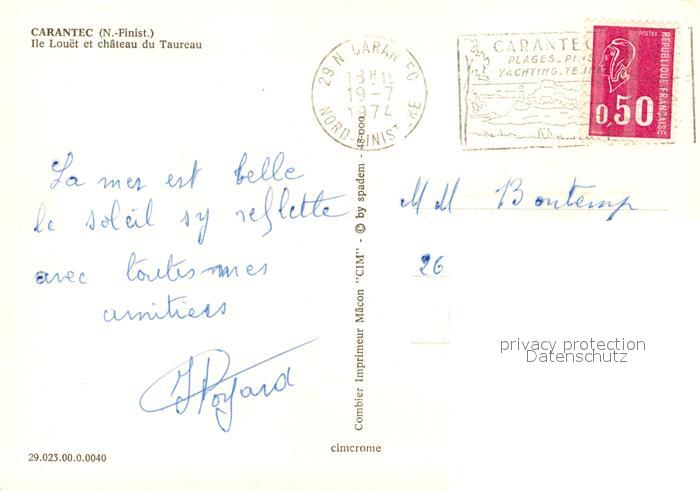 CARANTEC (N.-Finist.)
Ile Louët et château du Taureau
29 N CARANTEC
18H15
19-7
1974
NORD-FINISTERE
CARANTEC
PLAGES_PINS
YACHTING_TENNIS
REPUBLIQUE FRANÇAISE
0,50
La mer est belle
le soleil sy reflette
avec toutes mes
amitiers
M M Bontemp
26
Combier Imprimeur Mâcon "CIM" - © by spadem - 48-000
privacy protection
Datenschutz
cimcrome
29.023.00.0.0040